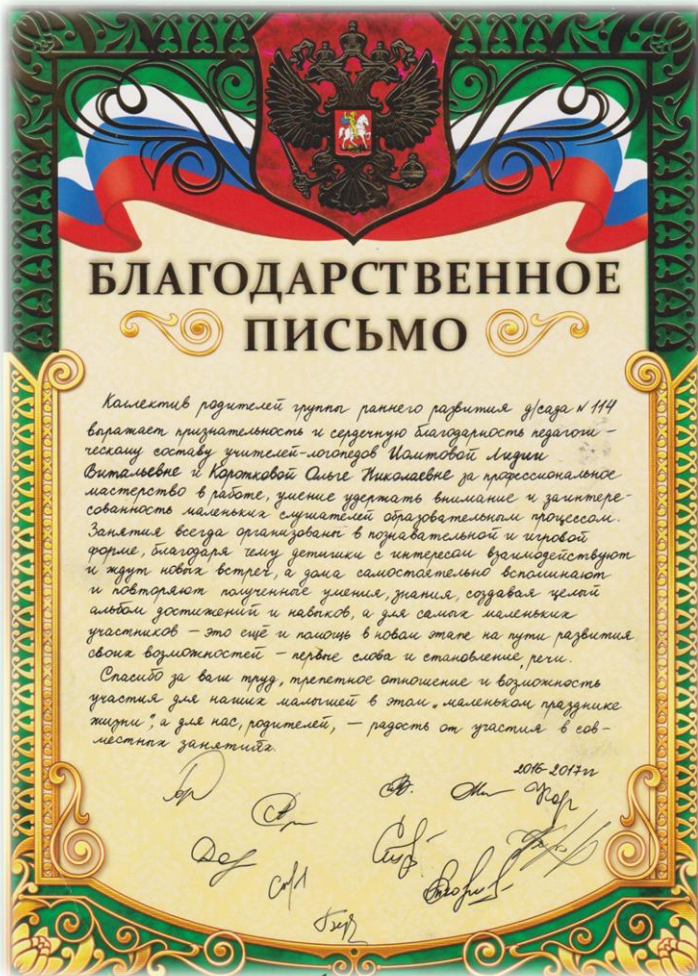 БЛАГОДАРСТВЕННОЕ
ПИСЬМО
Коллектив родителей группы раннего развития д/сада № 114
выражает признательность и сердечную благодарность педагоги-
ческому составу учителей-логопедов Иолтовой Лидии
Витальевне и Коротковой Ольге Николаевне за профессиональное
мастерство в работе, умение удержать внимание и заинтере-
сованность маленьких слушателей образовательным процессом.
Занятия всегда организованы в познавательной и игровой
форме, благодаря чему детишки с интересом взаимодействуют
и ждут новых встреч, а дома самостоятельно вспоминают
и повторяют полученные умения, знания, создавая целый
альбом достижений и навыков, а для самых маленьких
участников – это ещё и помощь в новом этапе на пути развития
своих возможностей – первые слова и становление речи.
Спасибо за ваш труд, трепетное отношение и возможность
участия для наших малышей в этом „маленьком празднике
жизни", а для нас, родителей, – радость от участия в сов-
местных занятиях.
2016-2017гг